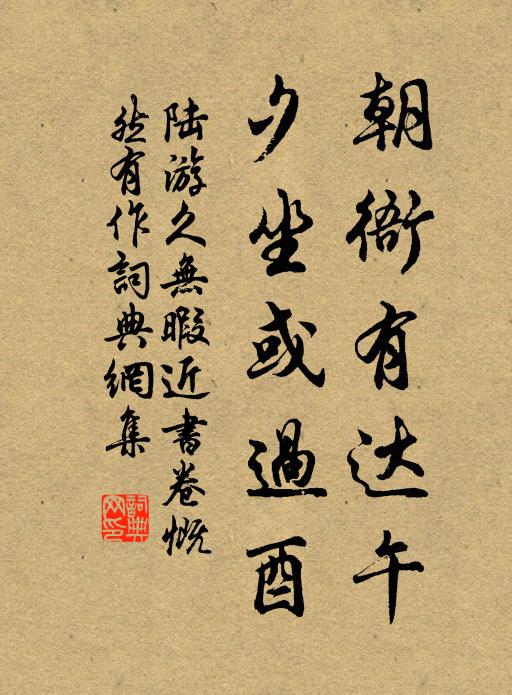 朝衙有达午
夕坐或過酉
陆游久無暇近書卷慨
然有作詞典網集
詞典
网印